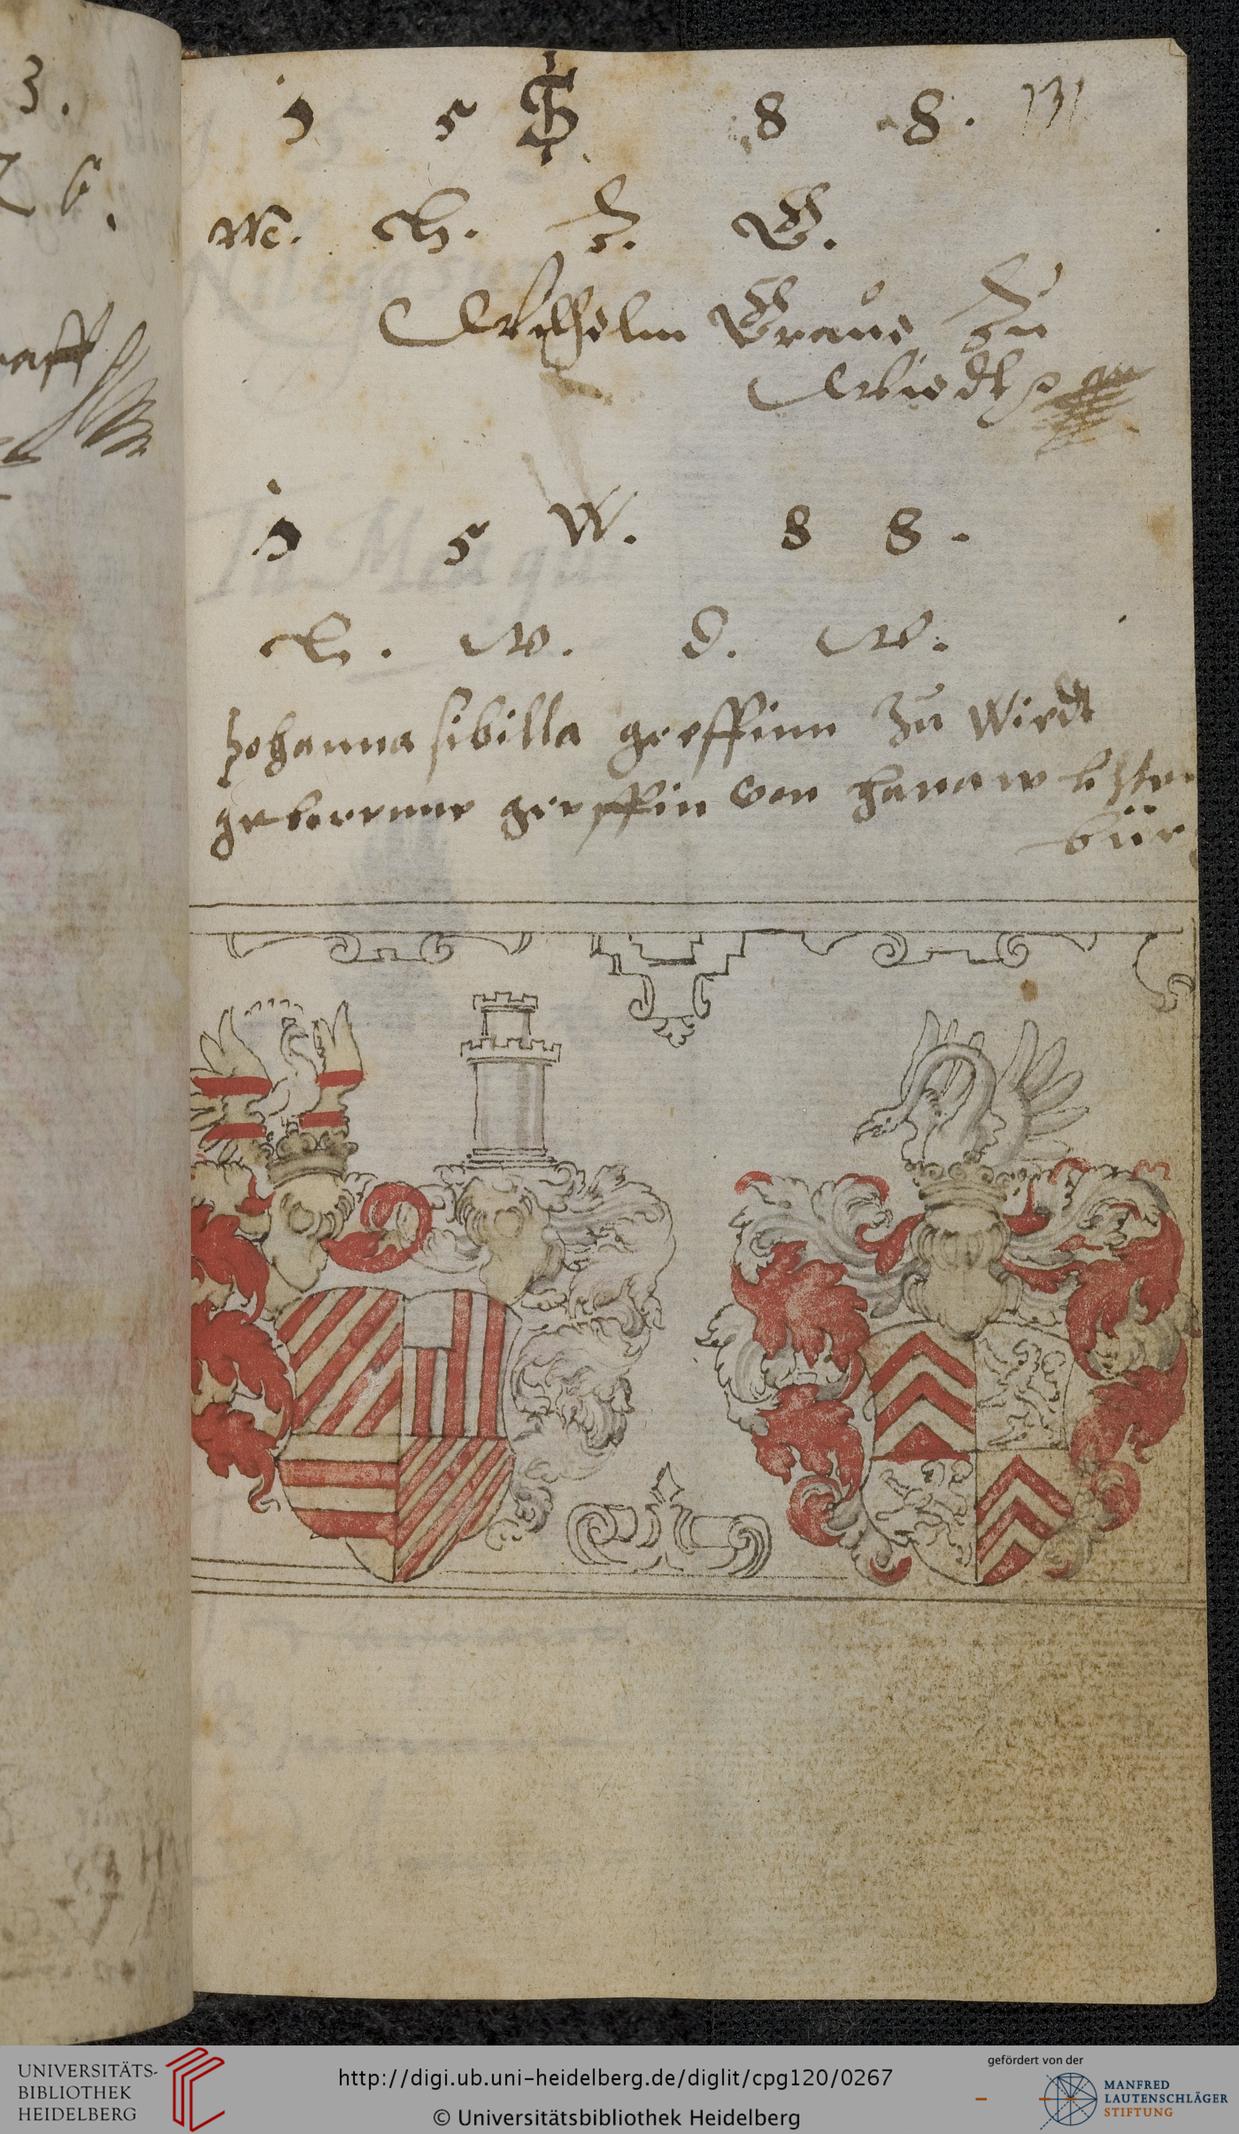 3.
6.
1 5 S 8 8. 131
W. H. Z. G.
Wilhelm Graue Zu
Wiedt
1 5 W. 8 8.
H. W. D. W.
Johanna sibilla greffinn Zu Wiedt
geborenne greffin von hanaw lichte
bür
UNIVERSITÄTS-
BIBLIOTHEK
HEIDELBERG
http://digi.ub.uni-heidelberg.de/diglit/cpg120/0267
© Universitätsbibliothek Heidelberg
gefördert von der
MANFRED
LAUTENSCHLÄGER
STIFTUNG